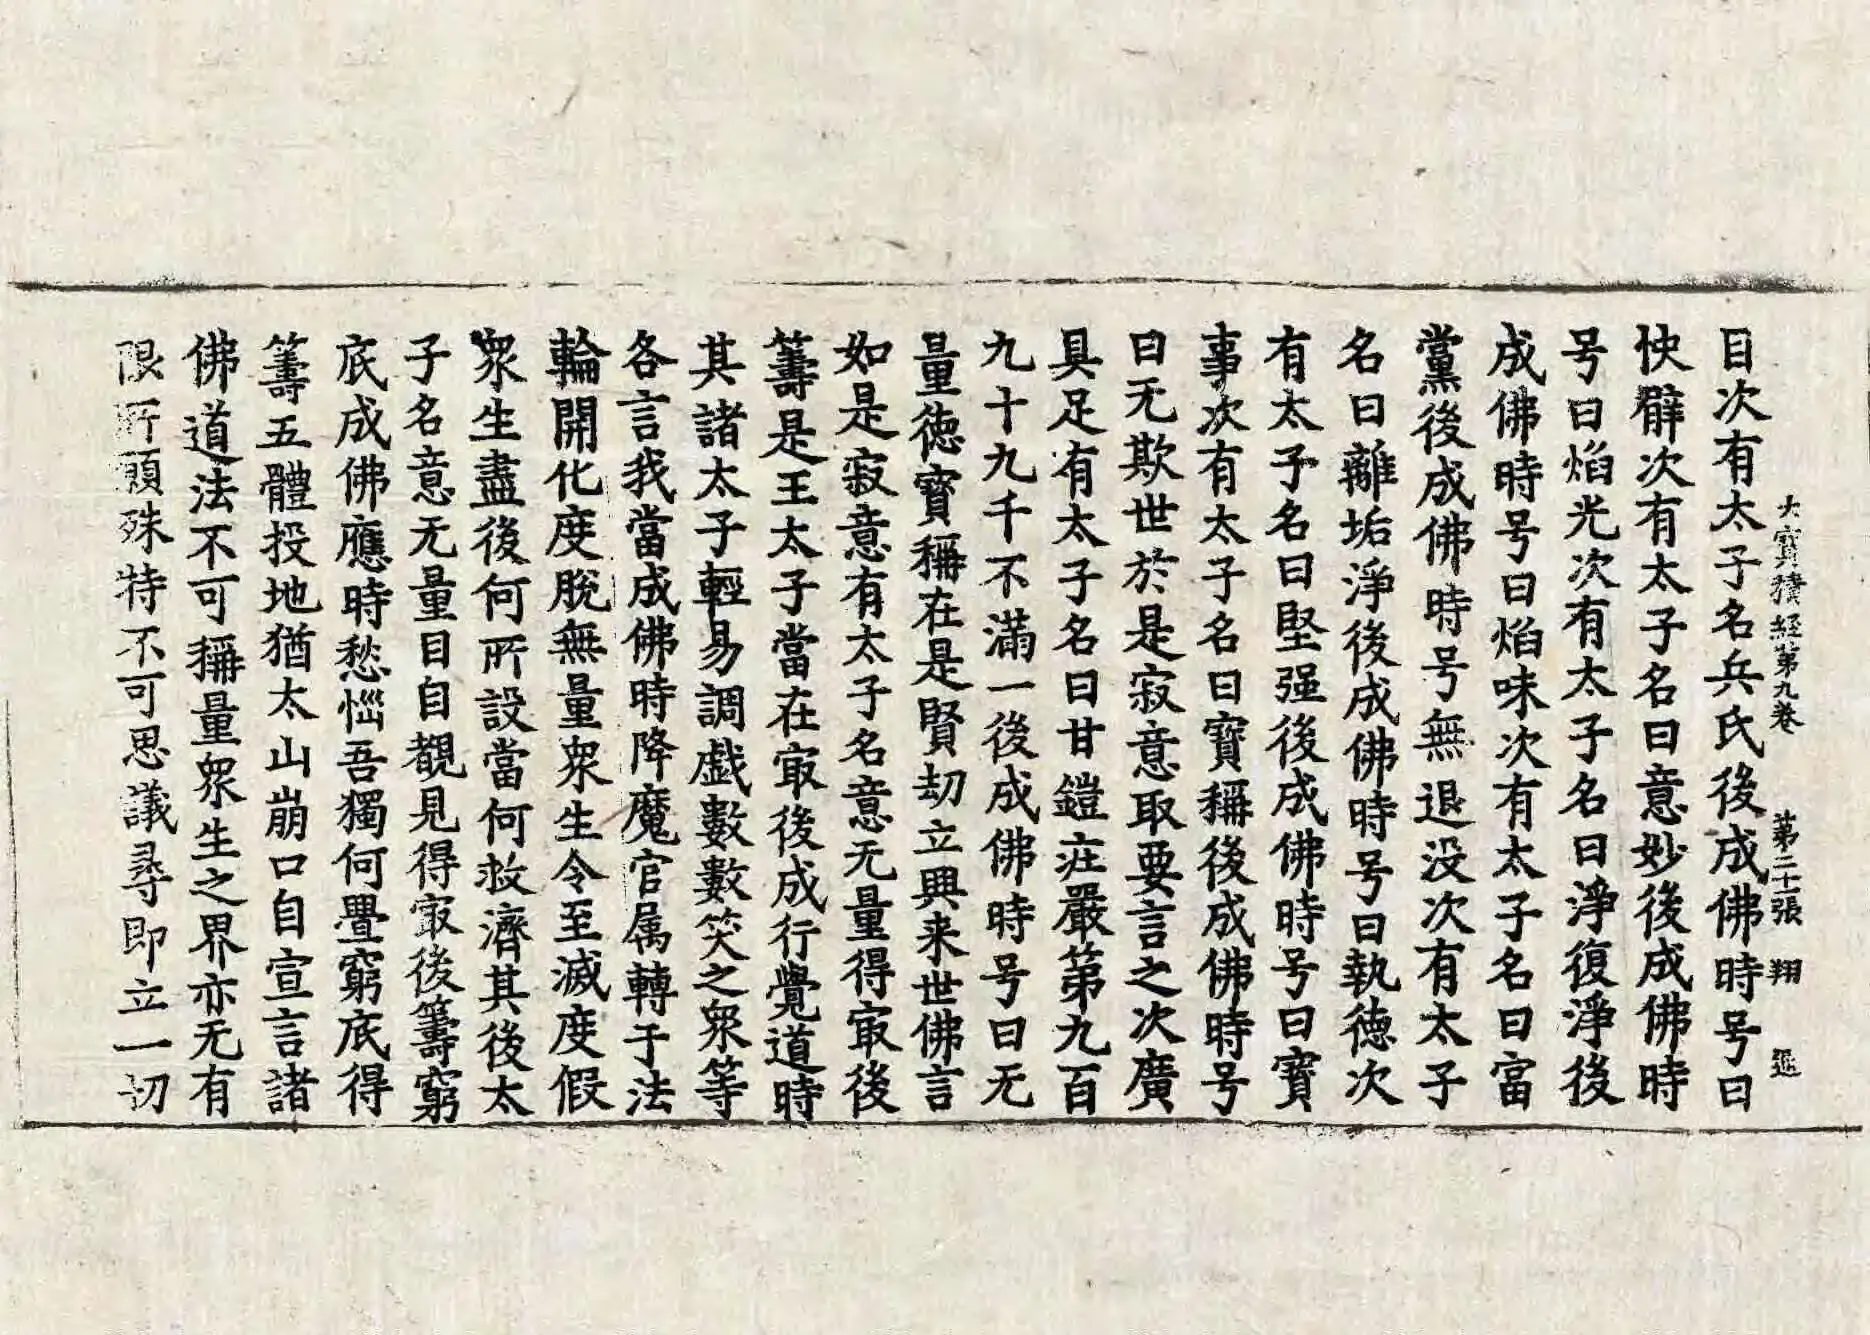 大寶積經第九卷 第二十張 翔
目次有太子名兵氏後成佛時号曰
快臂次有太子名曰意妙後成佛時
号曰焰光次有太子名曰淨復淨後
成佛時号曰焰味次有太子名曰富
黨後成佛時号無退没次有太子
名曰離垢淨後成佛時号曰執德次
有太子名曰堅强後成佛時号曰寶
事次有太子名曰寶稱後成佛時号
曰无欺世於是寂意取要言之次廣
具足有太子名曰甘鎧庄嚴第九百
九十九千不滿一後成佛時号曰无
量德寶稱在是賢劫立興来世佛言
如是寂意有太子名意无量得㝡後
籌是王太子當在㝡後成行覺道時
其諸太子輕易調戱數數笑之衆等
各言我當成佛時降魔官属轉于法
輪開化度脫無量衆生令至滅度假
衆生盡後何所設當何救濟其後太
子名意无量目自覩見得㝡後籌窮
底成佛應時愁惱吾獨何疊窮底得
籌五體投地猶太山崩口自宣言諸
佛道法不可稱量衆生之界亦无有
限所願殊特不可思議尋即立一切